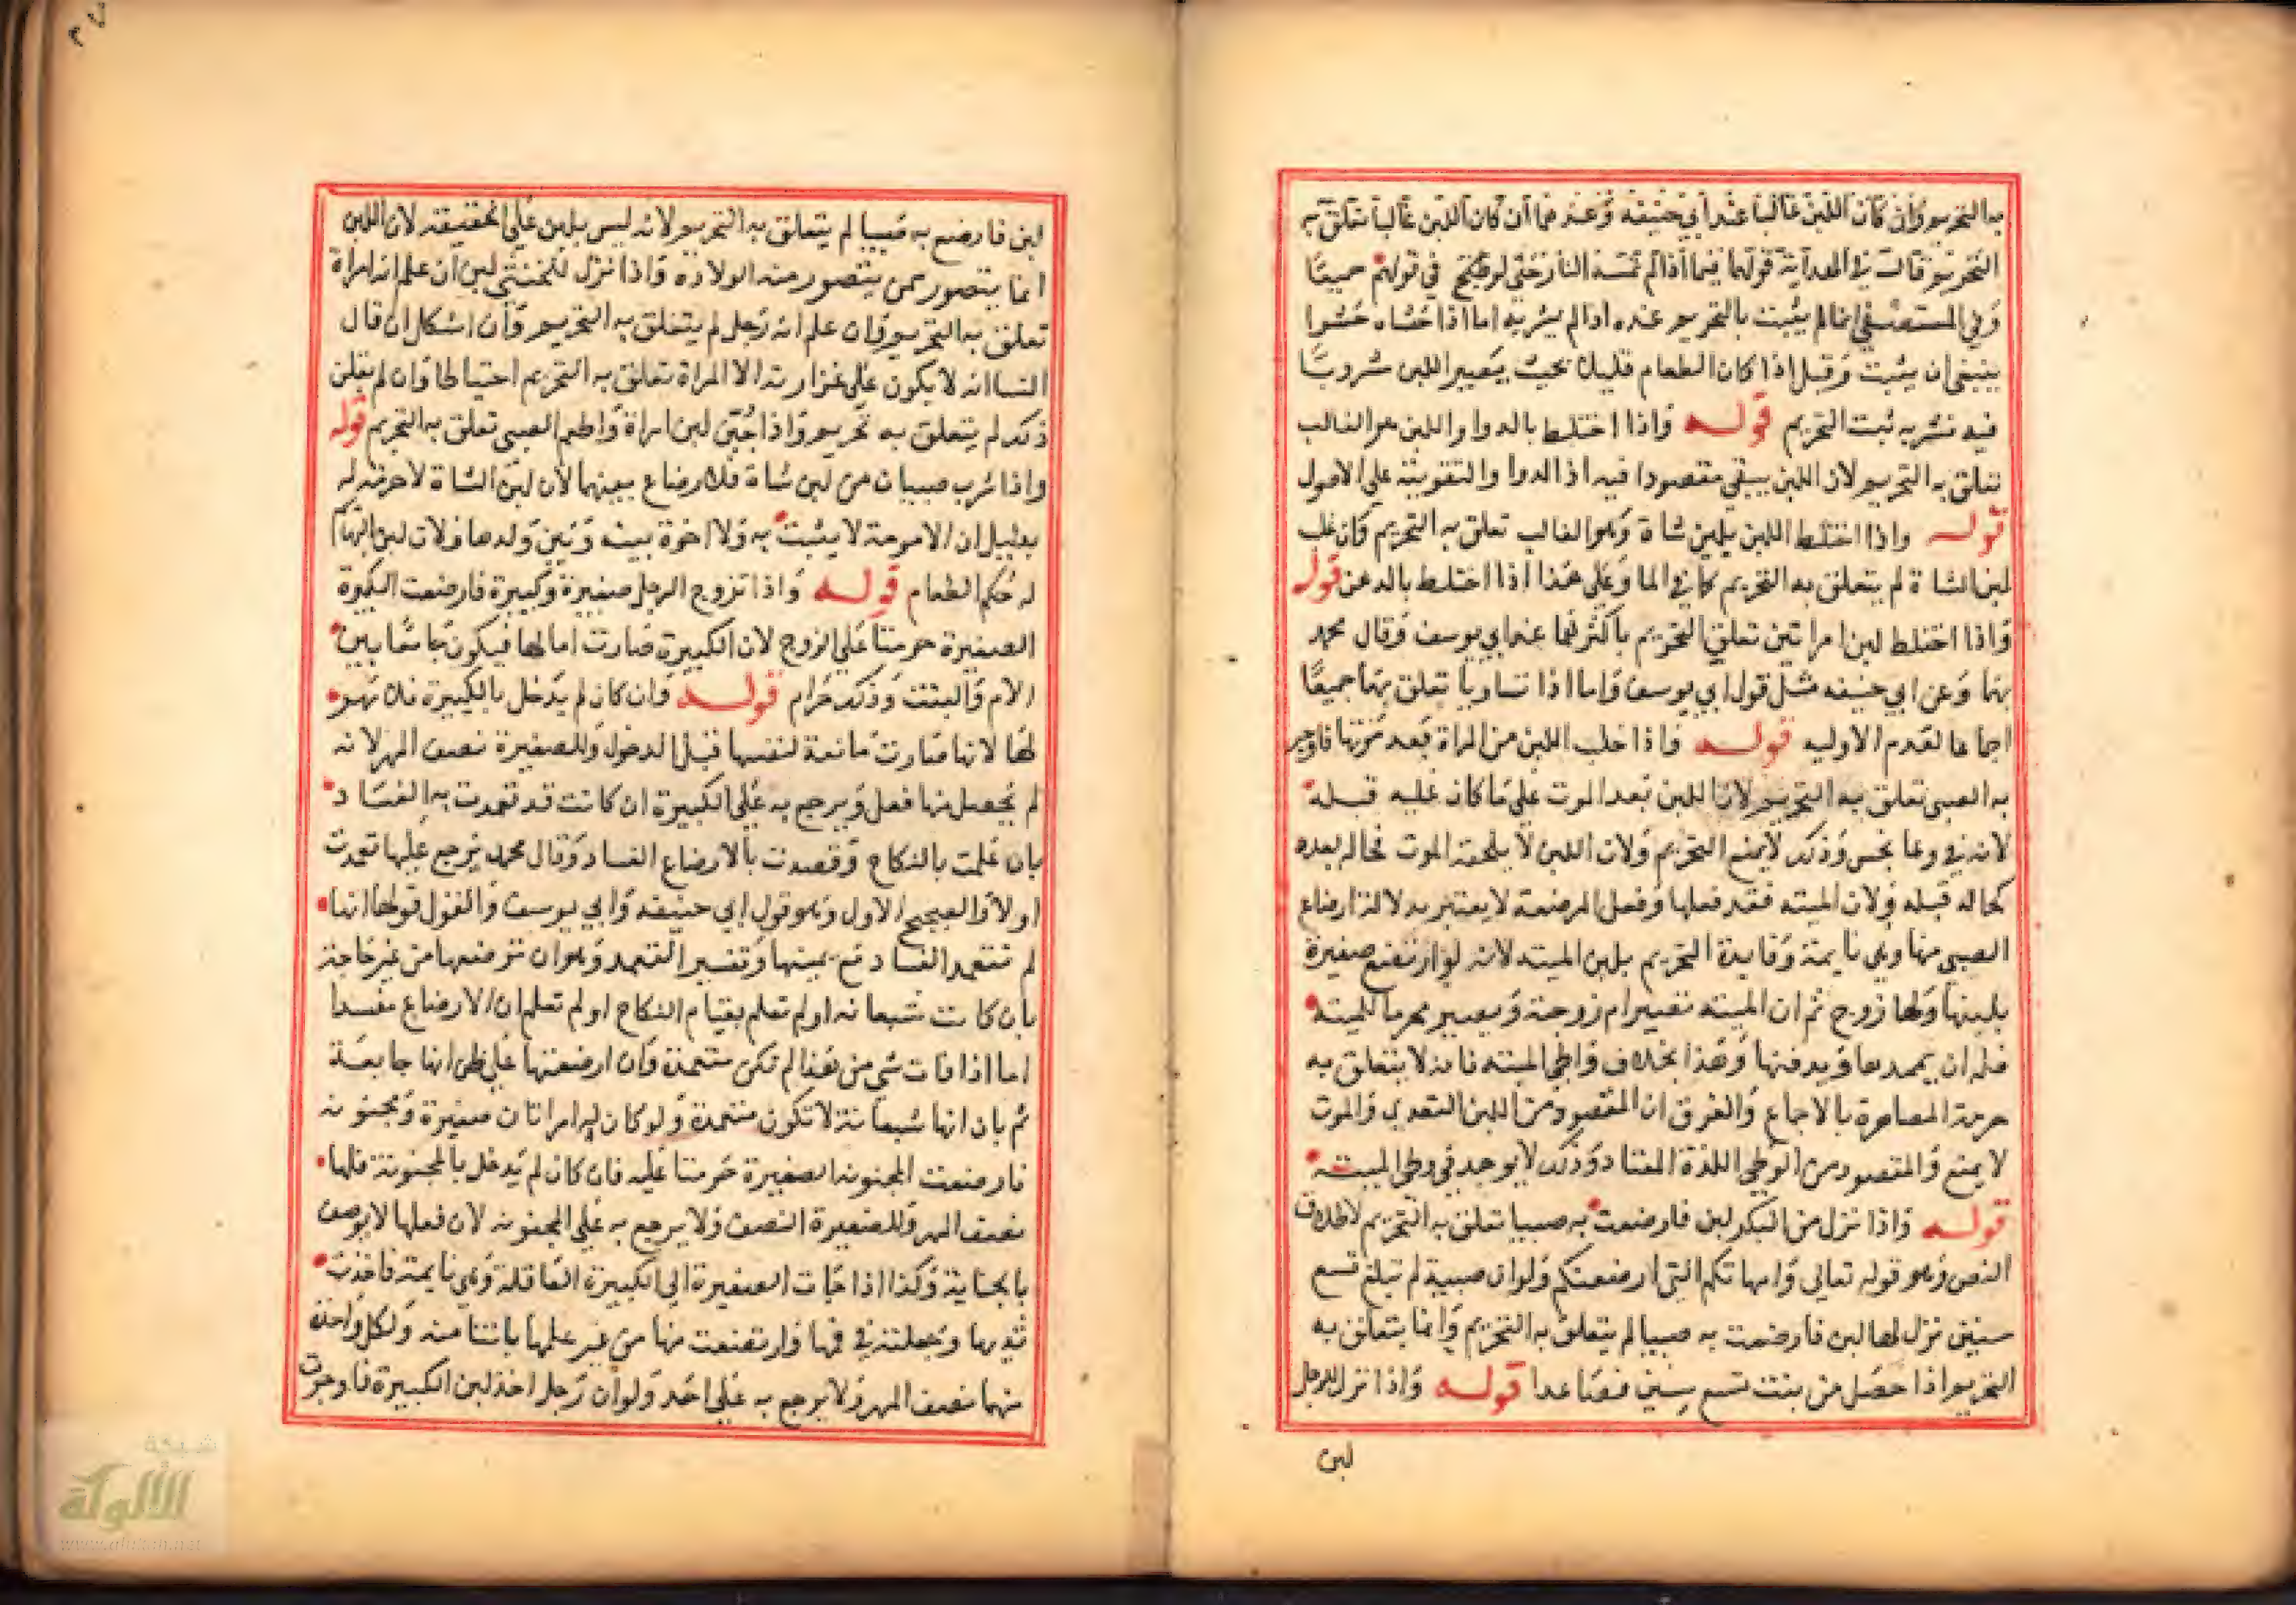 به التحريم وان كان اللبن غالبا عند ابي حنيفه وعندهما ان كان اللبن غالبا تعلق به
التحريم قال في الهداية قولهما فيما اذا لم تمسه النار حتى لو طبخ في قولهم جميعا
وفي المستصفى انما لم يثبت بالتحريم عنده اذا لم يشربه اما اذا حساه حسوا
ينبغي ان يثبت وقيل اذا كان الطعام قليلا بحيث يصير اللبن مشروبا
فيه فشربه ثبت التحريم قوله واذا اختلط بالدوا واللبن هو الغالب
تعلق به التحريم لان اللبن يبقى مقصودا فيه اذ الدوا والتقويته على الوصول
قوله واذا اختلط اللبن بلبن شاة وهو الغالب تعلق به التحريم وان غلب
لبن الشاة لم يتعلق به التحريم كما في الما وعلى هذا اذا اختلط بالدهن قوله
واذا اختلط لبن امراتين تعلق التحريم باكثرهما عند ابي يوسف وقال محمد
بهما وعن ابي حنيفه مثل قول ابي يوسف واما اذا تساويا تعلق بهما جميعا
اجماعا لعدم الاوليه قوله واذا حلب اللبن من المراة بعد موتها فاوجر
به الصبي تعلق به التحريم لان اللبن بعد الموت على ما كان عليه قبله
لانه في وعا نجس وذلك لا يمنع التحريم ولان اللبن لا يلحقه الموت فحاله بعده
كحاله قبله ولان الميته فقد فعلها وفعل المرضعة لا يعتبر بدلالة ارضاع
الصبي منها وهي نايمة وفايدة التحريم بلبن الميته لانه لو ارتضع صغيرة
بلبنها ولها زوج ثم ان الميته تصير ام زوجة ويصير محرما للميته
فله ان ييممها ويدفنها وهذا بخلاف واطي الميته فانه لا يتعلق به
حرمة المصاهرة بالاجماع والفرق ان المقصود من اللبن التغدي والموت
لا يمنع والمقصود من الوطي اللذة المعتاد وذلك لا يوجد في وطي الميته
قوله واذا نزل من البكر لبن فارضعت به صبيا تعلق به التحريم لاطلاق
النص وهو قوله تعالى وامهاتكم التي ارضعنكم ولو ان صبية لم تبلغ تسع
سنين نزل لها لبن فارضعت به صبيا لم يتعلق به التحريم وانما يتعلق به
التحريم اذا حصل من بنت تسع سنين فصاعدا قوله واذا نزل للرجل
لبن
لبن فارضع به صبيا لم يتعلق به التحريم لانه ليس بلبن على الحقيقه لان اللبن
انما يتصور ممن يتصور منه الولادة واذا نزل للخنثى لبن ان علم انه امراة
تعلق به التحريم وان علم انه رجل لم يتعلق به التحريم وان اشكل ان قال
النسا انه لا يكون على غزارته الا لامراة تعلق به التحريم احتياطا وان لم يقلن
ذلك لم يتعلق به تحريم واذا جبن لبن امراة واطعم الصبي تعلق به التحريم قوله
واذا شرب صبيان من لبن شاة فلا رضاع بينهما لان لبن الشاة لا حرمة له
بدليل ان الامومة لا يثبت به ولا اخوة بينه وبين ولدها ولان لبن البهايم
له حكم الطعام قوله واذا تزوج الرجل صغيرة وكبيرة فارضعت الكبيرة
الصغيرة حرمتا على الزوج لان الكبيرة صارت اما لها فيكون جامعا بين
الام والبنت وذلك حرام قوله وان كان لم يدخل بالكبيرة فلا مهر
لها لانها صارت مانعة لنفسها قبل الدخول وللصغيرة نصف المهر لانه
لم يحصل منها فعل ويرجع به على الكبيرة ان كانت قد تعمدت به الفساد
بان علمت بالنكاح وقصدت بالارضاع الفساد وقال محمد يرجع عليها تعمدت
اولا والصحيح الاول وهو قول ابي حنيفه وابي يوسف والقول قولها انها
لم تتعمد الفساد مع يمينها وتفسير التعمد وهو ان ترضعها من غير حاجة
بان كانت شبعانه او لم تعلم بقيام النكاح او لم تعلم ان الارضاع مفسدا
اما اذا فات شي من هذا لم تكن متعمدة وان ارضعتها على ظن انها جايعة
ثم بان انها شبعانة لا تكون متعمدة ولو كان له امراتان صغيرة ومجنونه
فارضعت المجنونه الصغيرة حرمتا عليه فان كان لم يدخل بالمجنونة فلها
نصف المهر وللصغيرة النصف ولا يرجع به على المجنونه لان فعلها لا يوصف
بالجناية وكذا اذا جات الصغيرة الى الكبيرة العاقلة وهي نايمة فاخذت
ثديها وجعلته في فمها وارتضعت منها من غير علمها بانتا منه ولكل واحدة
منهما نصف المهر ولا يرجع به على احد ولو ان رجل اخذ لبن الكبيرة فاوجرت
شبكة
الألوكة
www.alukah.net